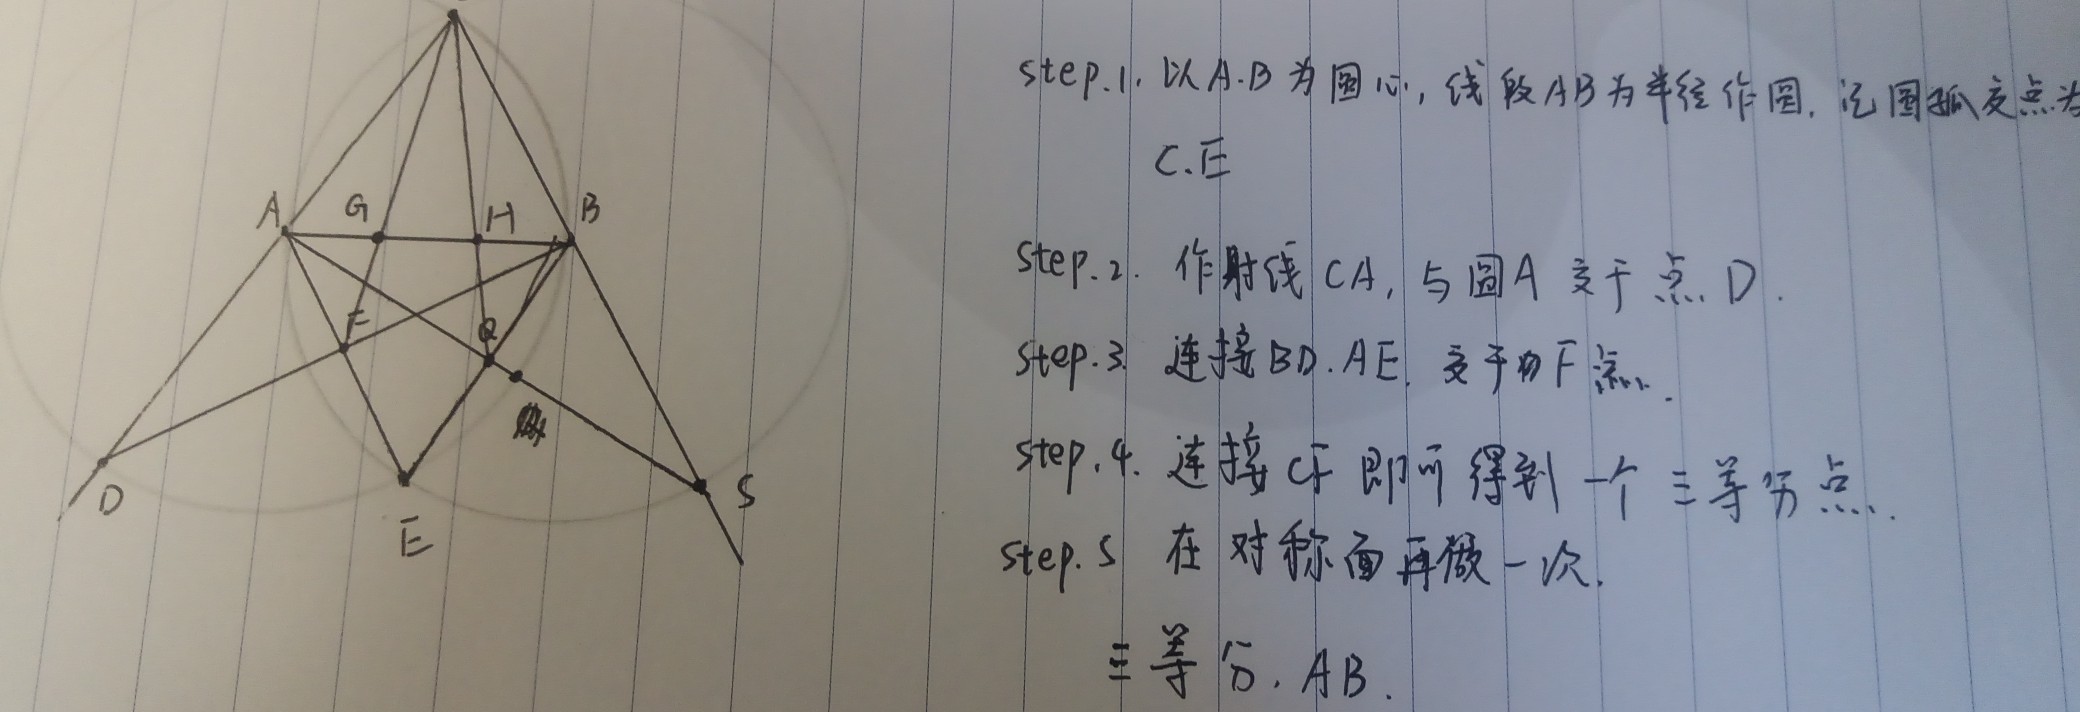 A G H B
F Q
D E S
step.1. 以A.B为圆心,线段AB为半径作圆.记圆弧交点为
C.E
step.2. 作射线CA,与圆A交于点D.
step.3. 连接BD.AE.交于F点.
step.4. 连接CF即可得到一个三等分点.
step.5 在对称面再做一次.
三等分.AB.